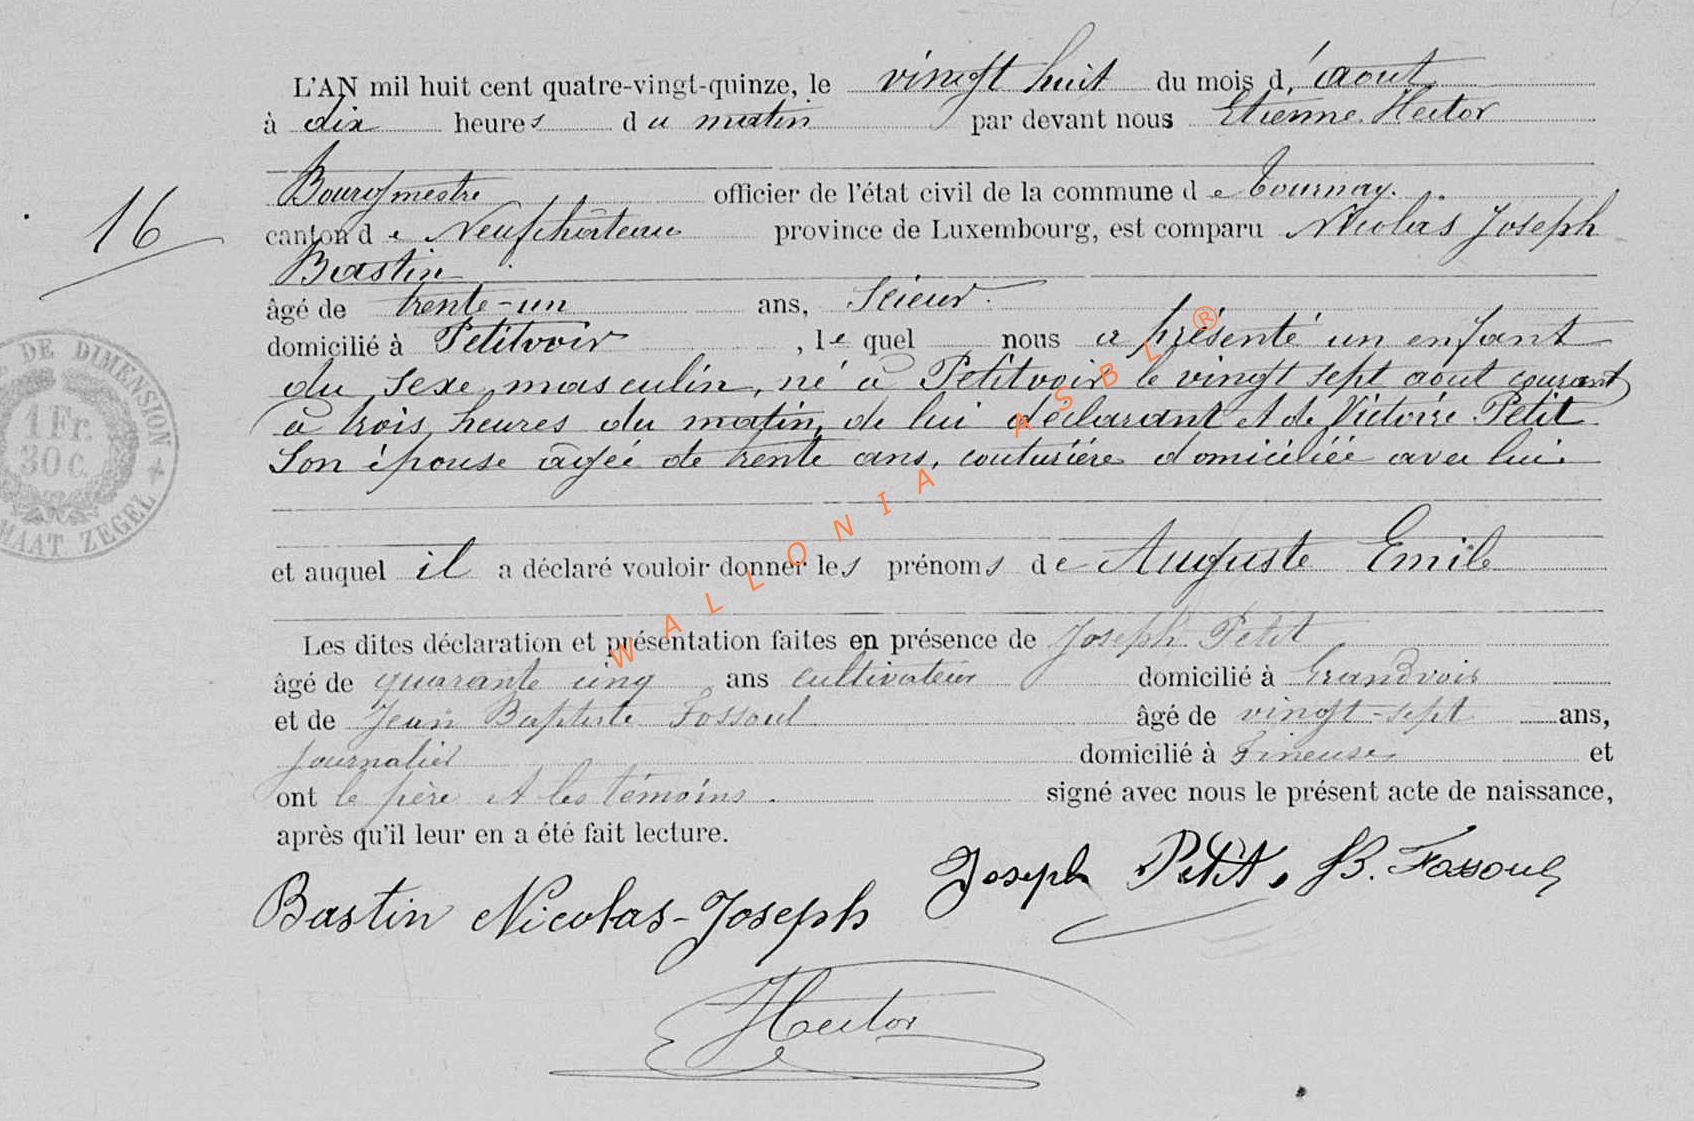 L'AN mil huit cent quatre-vingt-quinze, le vingt huit du mois d'août
à dix heures du matin par devant nous Etienne Hector
Bourgmestre officier de l'état civil de la commune de Tournay.
16
canton de Neufchâteau province de Luxembourg, est comparu Nicolas Joseph
Bastin
âgé de trente-un ans, Scieur.
domicilié à Petitvoir, lequel nous a présenté un enfant
du sexe masculin, né à Petitvoir le vingt sept août courant
à trois heures du matin, de lui déclarant et de Victoire Petit
Son épouse âgée de trente ans, couturière domiciliée avec lui.
et auquel il a déclaré vouloir donner les prénoms de Auguste Emile
Les dites déclaration et présentation faites en présence de Joseph Petit
âgé de quarante cinq ans cultivateur domicilié à Grandvoir
et de Jean Baptiste Fossoul âgé de vingt-sept ans,
journalier domicilié à Fineuse et
ont le père et les témoins. signé avec nous le présent acte de naissance,
après qu'il leur en a été fait lecture.
Joseph Petit, JB. Fossoul
Bastin Nicolas-Joseph
Hector
DE DIMENSION
1 Fr.
30 C.
MAAT ZEGEL
WALLONIA ASBL ®